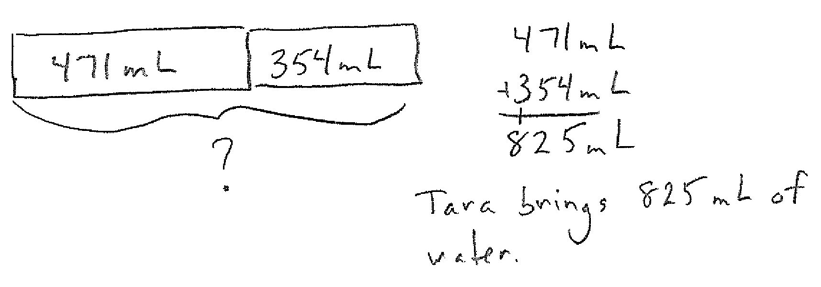 471mL 354mL
?
471mL
+354mL
1
825mL
Tara brings 825mL of
water.